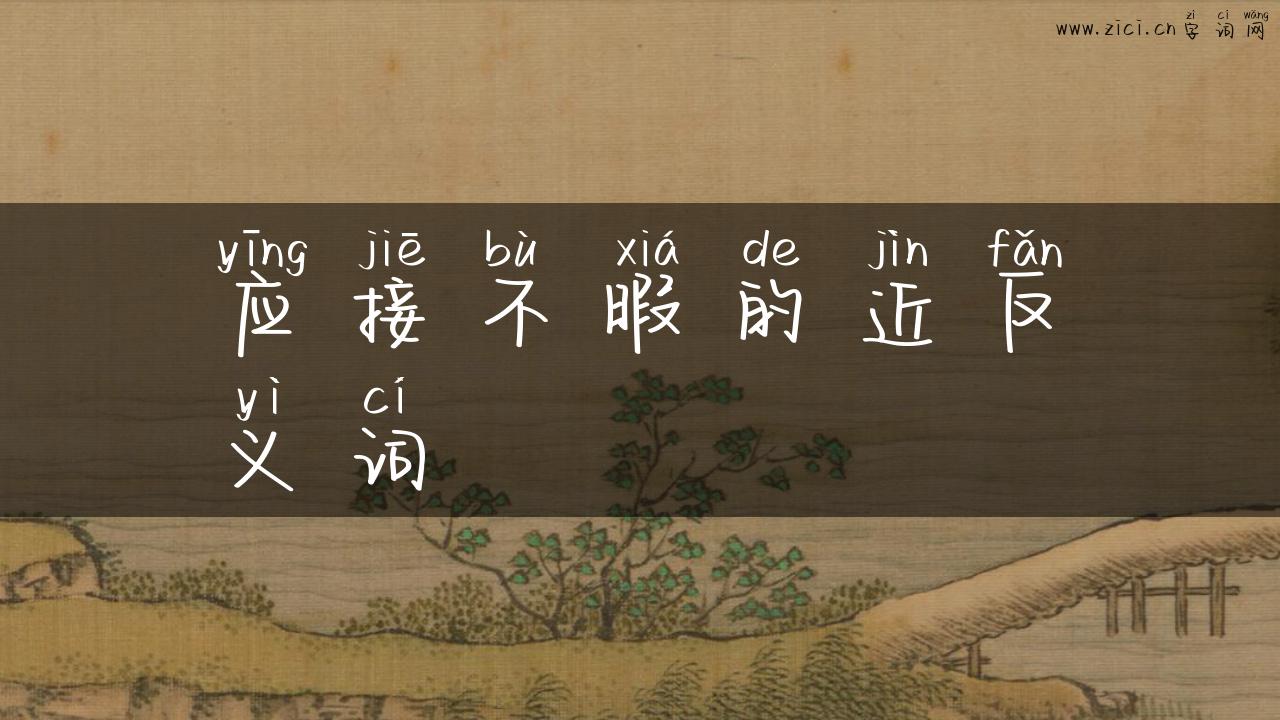 zì cí wǎng
www.zici.cn 字 词 网
yīng jiē bù xiá de jìn fǎn
应 接 不 暇 的 近 反
yì cí
义 词